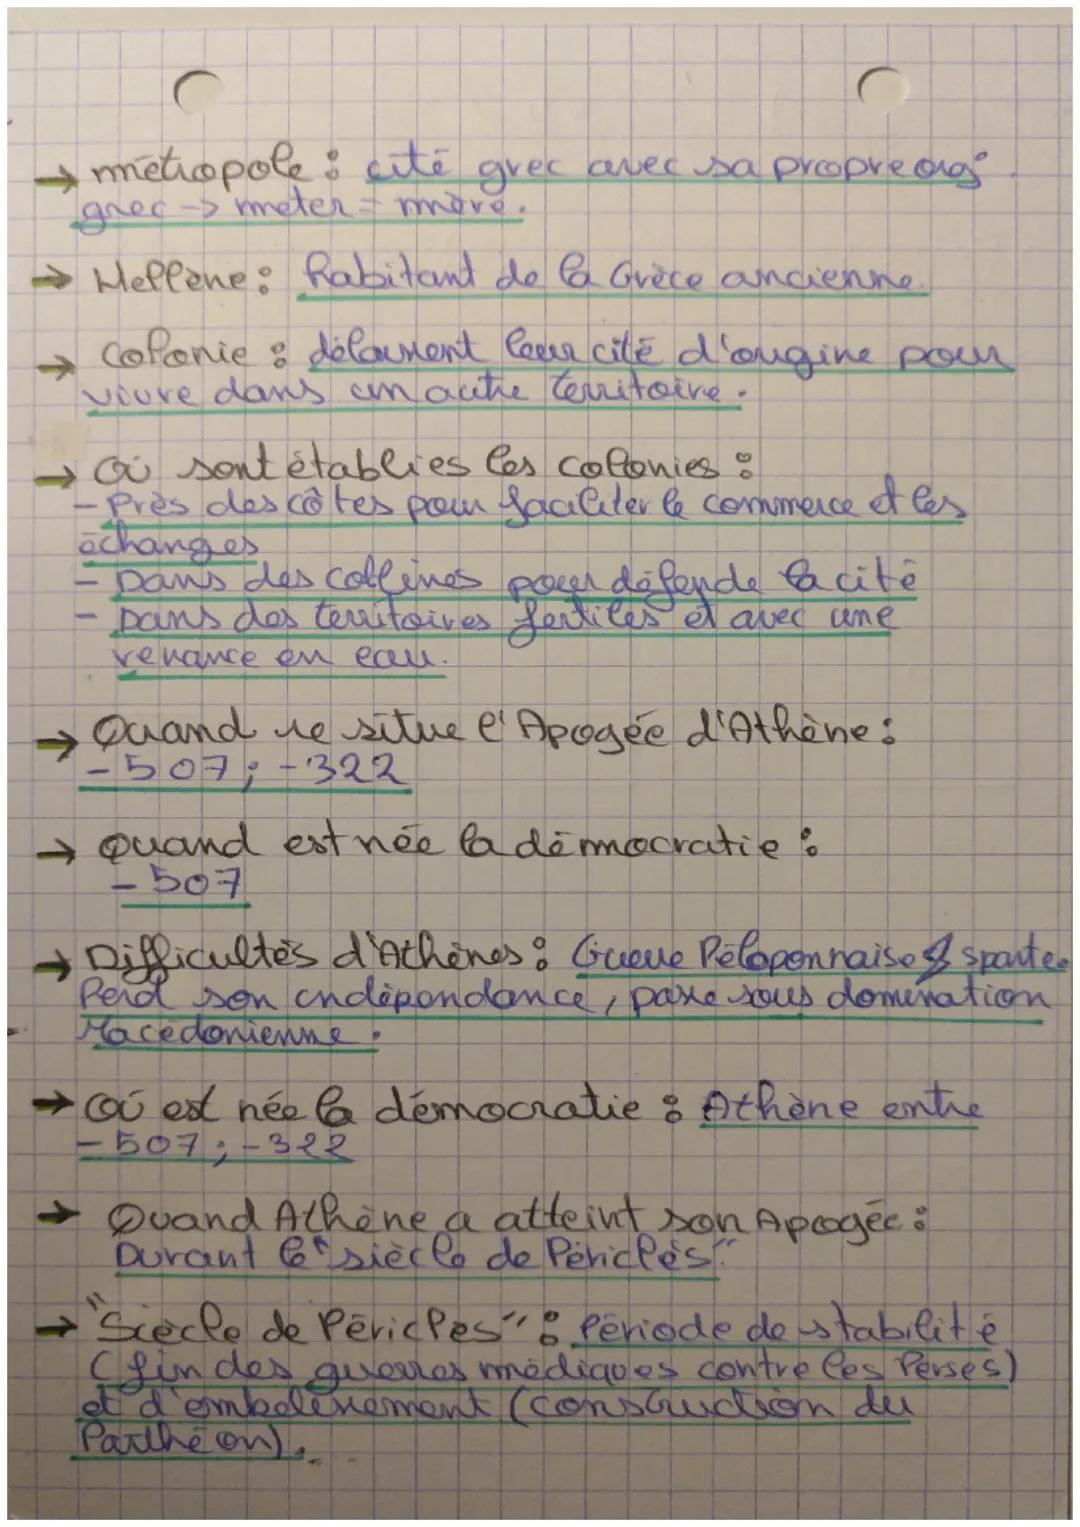 → métropole : cité grec avec sa propre org°
grec -> meter = mère.
→ Hellène : habitant de la Grèce ancienne.
→ Colonie : délaissent leur cité d'origine pour
vivre dans un autre territoire.
→ Où sont établies les colonies :
- Près des côtes pour faciliter le commerce et les
échanges
- Dans des collines pour défende la cité
- Dans des territoires fertiles et avec une
venance en eau.
→ Quand se situe l'Apogée d'Athène :
- 507 ; - 322
→ Quand est née la démocratie :
- 507
→ Difficultés d'Athènes : Guerre Péloponnaise sparte.
Perd son indépendance, passe sous domination
Macédonienne.
→ Où est née la démocratie : Athène entre
- 507 ; - 322
→ Quand Athène a atteint son Apogée :
Durant le "siècle de Périclès".
→ "Siècle de Périclès" : Période de stabilité
(fin des guerres médiques contre les Perses)
et d'embelissement (construction du
Parthéon).